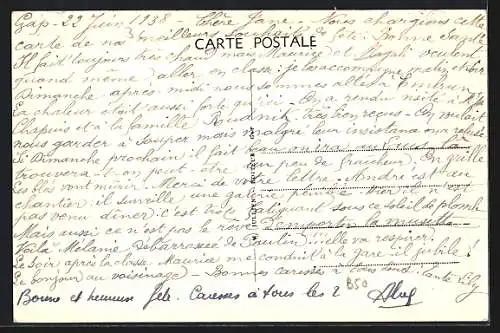 Gap - 22 Juin 1938 - Chère Jane - Nous chargeons cette
carte de nos meilleurs souhaits de fête: Bonne Santé
CARTE POSTALE
Il fait toujours très chaud mais Maurice et Magali veulent
quand même aller en classe: je les accompagne matin et soir
Dimanche après-midi nous sommes allés à Embrun
La chaleur était aussi forte qu'ici - On a rendu visite à
Chapuis et à la famille très bien reçus - On voulait
nous garder à souper mais malgré leur insistance on a refusé
Si Dimanche prochain il fait beau on ira au
trouvera-t-on peut être un peu de fraicheur. On grille
les blés vont murir. Merci de votre lettre. André est au
chantier: il surveille une galerie
pas venu diner: c'est très fatiguant sous ce soleil de plomb
Mais aussi ce n'est pas le rêve d'emporter la musette
Voilà Mélanie débarrassée de elle va respirer.
Le soir après la classe Maurice me conduit à la gare il jubile!
Le bonjour au voisinage - Bonnes caresses à tous deux. Tante Lily
Bonne et heureuse fête. Caresses à tous les 2
B50